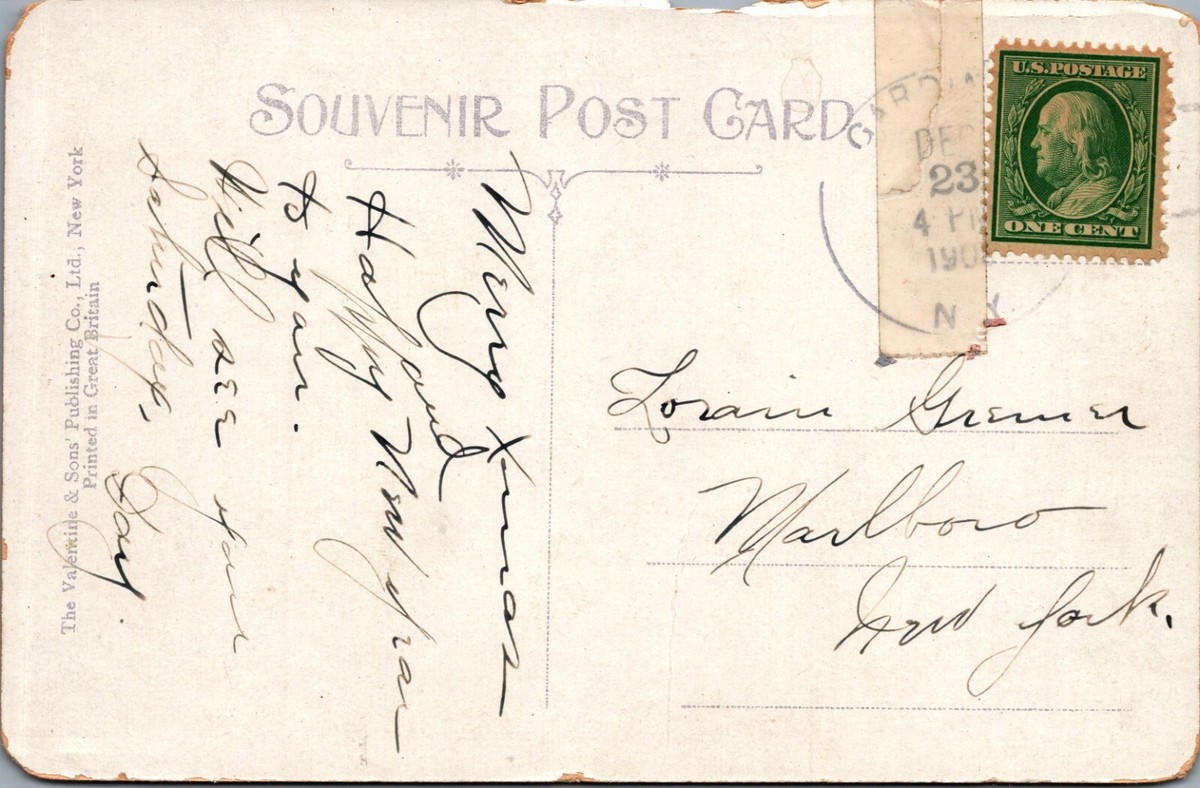 SOUVENIR POST CARD
U.S. POSTAGE
ONE CENT
DEC
23
4 PM
190
N Y
Merry Xmas
and
Happy New Year
to you.
Will see you
Saturday.
The Valentine & Sons' Publishing Co., Ltd., New York
Printed in Great Britain
Lorain Gremer
Marlboro
New York.